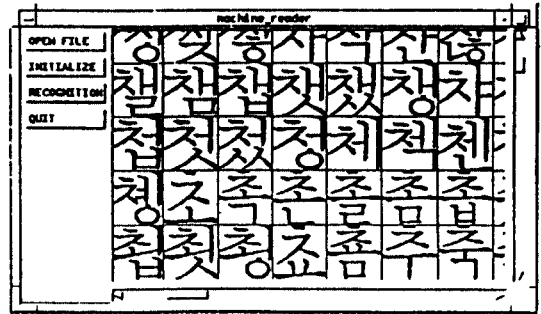 machine_reader
OPEN FILE
INITIALIZE
RECOGNITION
QUIT
챌 챔 챕 챗 챘 챙 챠
첩 첫 첬 청 체 첵 첸
쳉 초 촉 촌 촐 촘 촙
쵭 쵯 쵱 쵸 춈 추 축